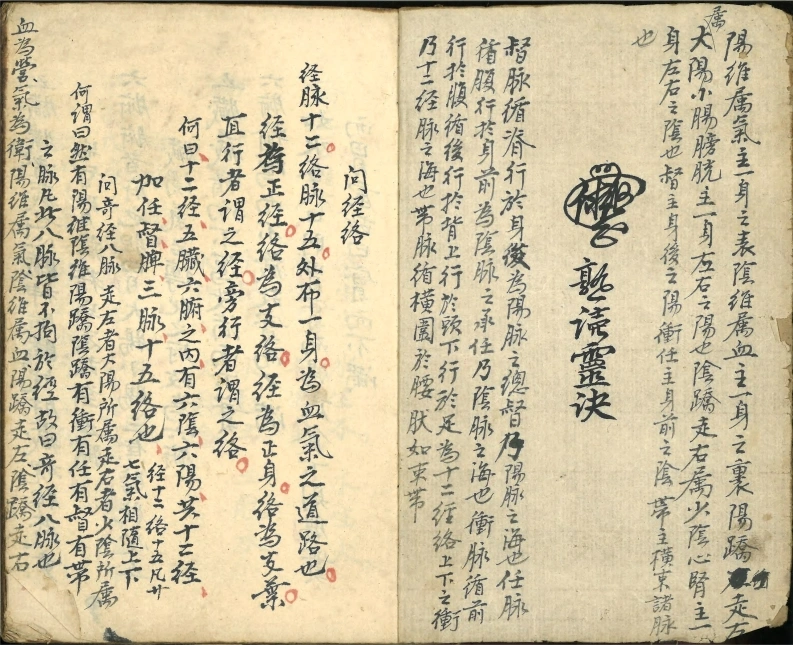 陽維属氣主一身之表陰維属血主一身之裏陽蹻走左
属
太陽小腸膀胱主一身左右之陽也陰蹻走右属少陰心腎主一
身左右之陰也督主身後之陽衝任主身前之陰帶主橫束諸脉
也
熟读靈诀
督脉循脊行於身後為陽脉之總督乃陽脉之海也任脉
循腹行於身前為陰脉之承任乃陰脉之海也衝脉循前
行於腹循後行於背上行於頭下行於足為十二経絡上下之衝
乃十二経脉之海也帶脉循橫圍於腰狀如束帶
問経絡
経脉十二絡脉十五外布一身為血氣之道路也
経為正経絡為支絡経為正身絡為支葉
直行者謂之経旁行者謂之絡
何曰十二経五臟六腑之內有六陰六陽共十二経
加任督脾三脉十五絡也
経十二絡十五凡廿
七氣相隨上下
問奇経八脉走左者太陽所属走右者少陰所属
何謂曰然有陽維陰維陽蹻陰蹻有衝有任有督有帶
之脉凡此八脉皆不拘於經故曰奇経八脉也
血為營氣為衛陽維属氣陰維属血陽蹻走左陰蹻走右